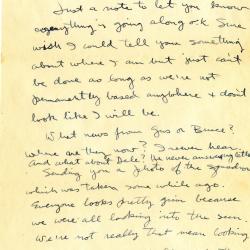 Just a note to let you know
everything's going along o.k. Sure
wish I could tell you something
about where I am but just can't
be done as long as we're not
permanently based anywhere & don't
look like I will be.
What news from Gus or Bruce?
Where are they now? I never hear.
And what about Dale? He never answers
Sending you a photo of the squadron
which was taken some while ago.
Everyone looks pretty grim because
we were all looking into the sun
We're not really that mean looking